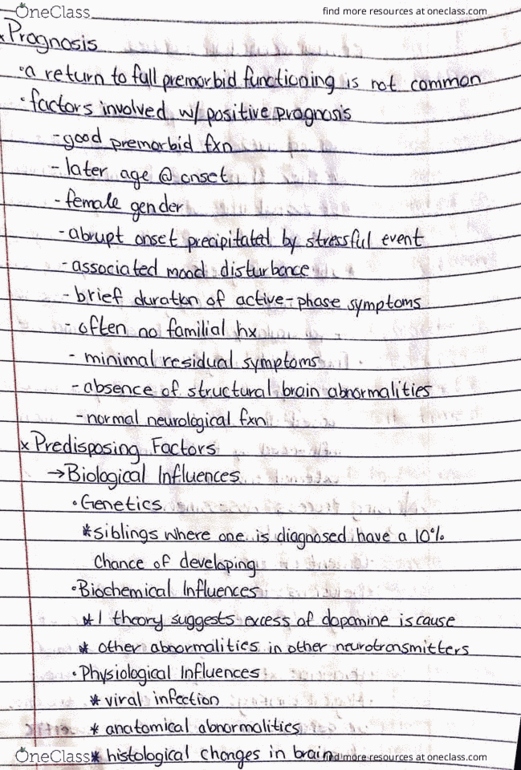 OneClass
find more resources at oneclass.com
x Prognosis
•a return to full premorbid functioning is not common
•factors involved w/ positive prognosis
-good premorbid fxn
-later age @ onset
-female gender
-abrupt onset precipitated by stressful event
-associated mood disturbance
-brief duration of active-phase symptoms
-often no familial hx
- minimal residual symptoms
-absence of structural brain abnormalities
-normal neurological fxn
x Predisposing Factors
→Biological Influences
•Genetics
*siblings where one is diagnosed have a 10%
chance of developing
•Biochemical Influences
*1 theory suggests excess of dopamine is cause
* other abnormalities in other neurotransmitters
•Physiological Influences
* viral infection
* anatomical abnormalities
* histological changes in brain
OneClass
find more resources at oneclass.com